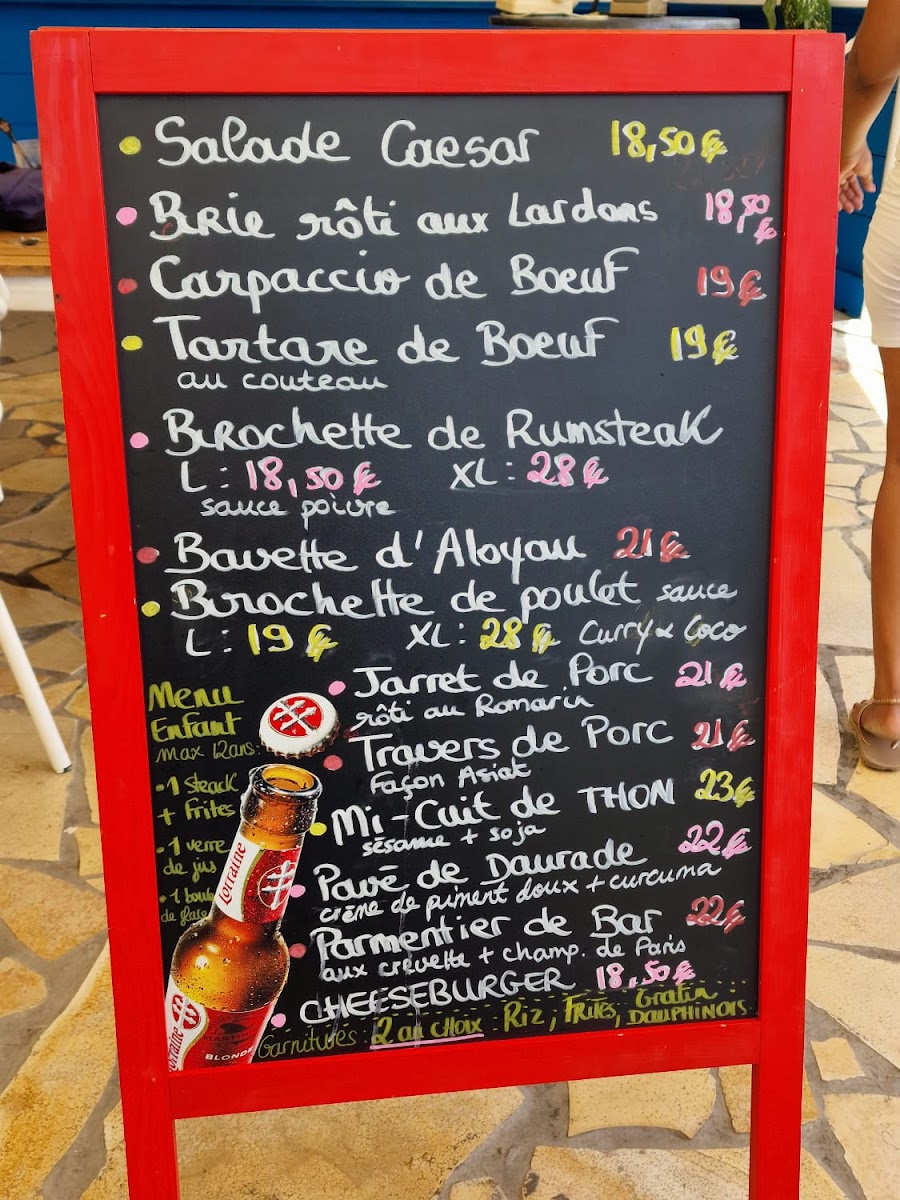 Salade Caesar 18,50€
Brie rôti aux Lardons 18,50€
Carpaccio de Boeuf 19€
Tartare de Boeuf 19€
au couteau
Brochette de Rumsteak
L : 18,50€ XL : 28€
sauce poivre
Bavette d'Aloyau 21€
Brochette de poulet sauce
L : 19€ XL : 28€ Curry & Coco
Jarret de Porc 21€
rôti au Romarin
Travers de Porc 21€
Façon Asiat
Mi-Cuit de THON 23€
sésame + soja
Pavé de Daurade 22€
crème de piment doux + curcuma
Parmentier de Bar 22€
aux crevette + champ. de Paris
CHEESEBURGER 18,50€
Garnitures : 2 au choix : Riz, Frites, Gratin
DAUPHINOIS
Menu
Enfant
max 12ans:
1 steack
+ Frites
1 verre
de jus
1 boule
de glace
Lorraine
Lorraine
BLONDE